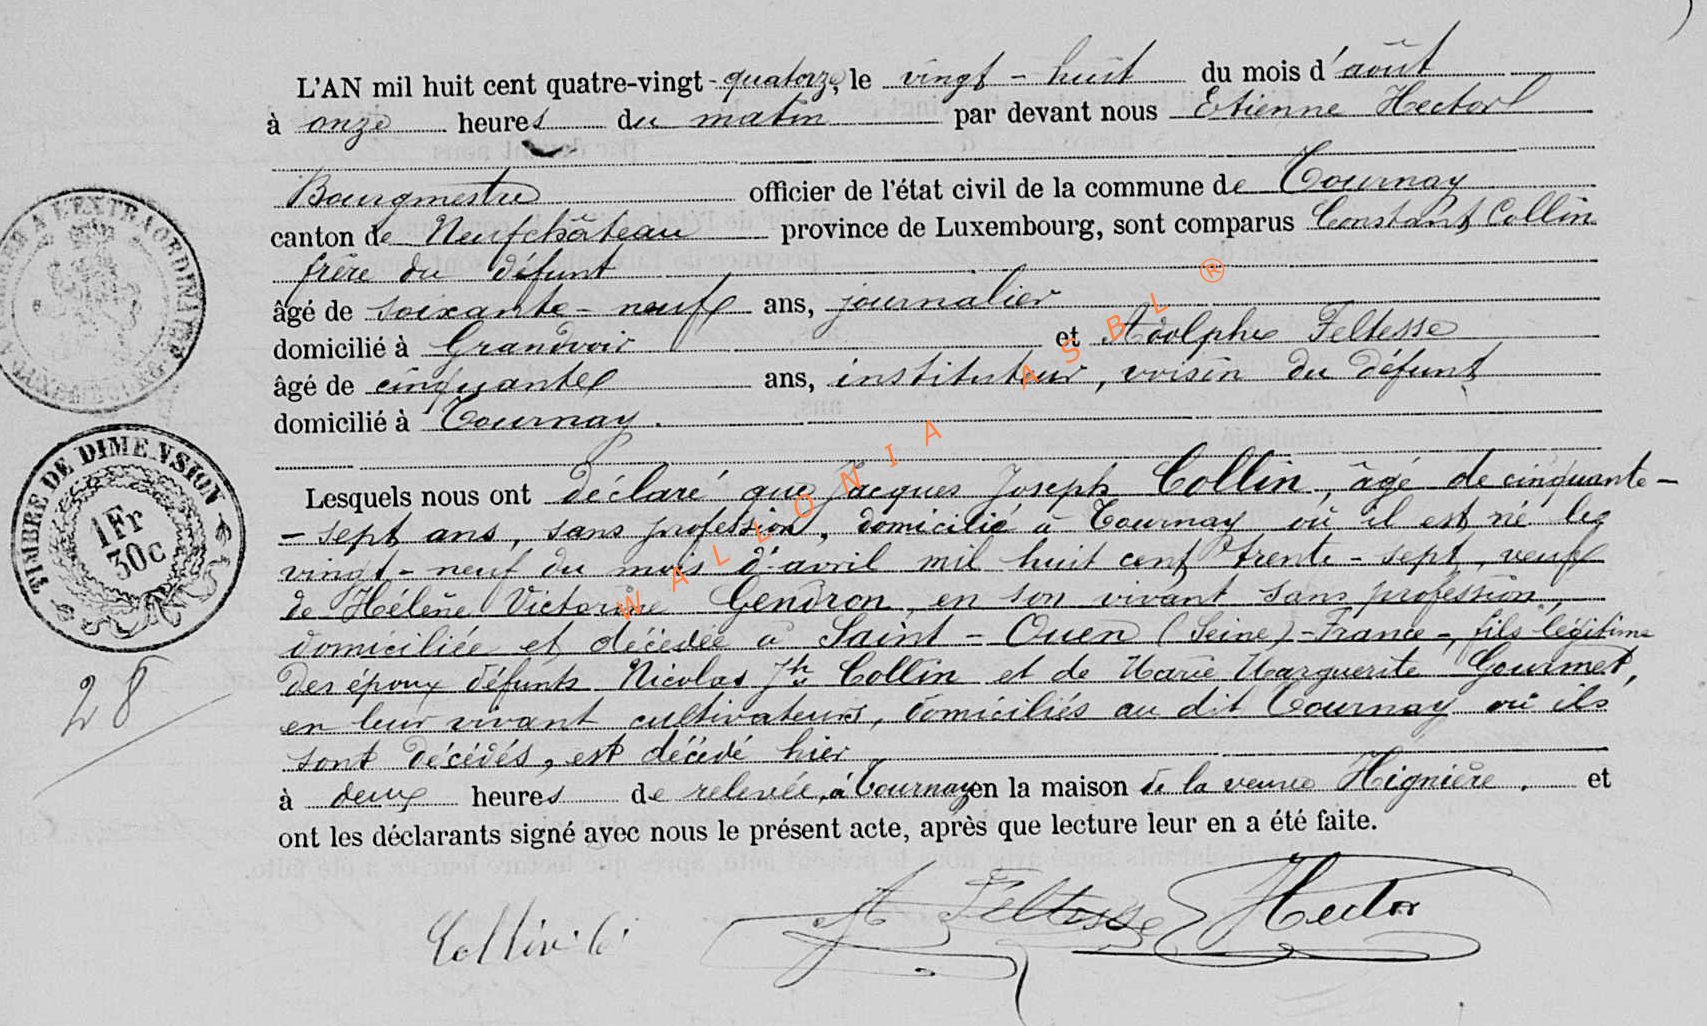 L'AN mil huit cent quatre-vingt-quatorze, le vingt-huit du mois d'août
à onze heures du matin par devant nous Etienne Hector
Bourgmestre officier de l'état civil de la commune de Tournay
canton de Neufchâteau province de Luxembourg, sont comparus Constant Collin
frère du défunt
âgé de soixante-neuf ans, journalier
domicilié à Grandvoir et Adolphe Feltesse
âgé de cinquante ans, instituteur, voisin du défunt
domicilié à Tournay.
Lesquels nous ont déclaré que Jacques Joseph Collin, âgé de cinquante-
-sept ans, sans profession, domicilié à Tournay où il est né le
vingt-neuf du mois d'avril mil huit cent trente-sept, veuf
de Hélène Victorine Gendron, en son vivant sans profession,
domiciliée et décédée à Saint-Ouen (Seine)-France-, fils légitime
des époux défunts Nicolas Jh Collin et de Marie Marguerite Gourmet,
en leur vivant cultivateurs, domiciliés au dit Tournay où ils
sont décédés, est décédé hier
à deux heures de relevée, à Tournay en la maison de la veuve Hignière. et
ont les déclarants signé avec nous le présent acte, après que lecture leur en a été faite.
A Feltesse Hector
TIMBRE DE DIMENSION
1Fr
30c
28
WALLONIA ASBL ®